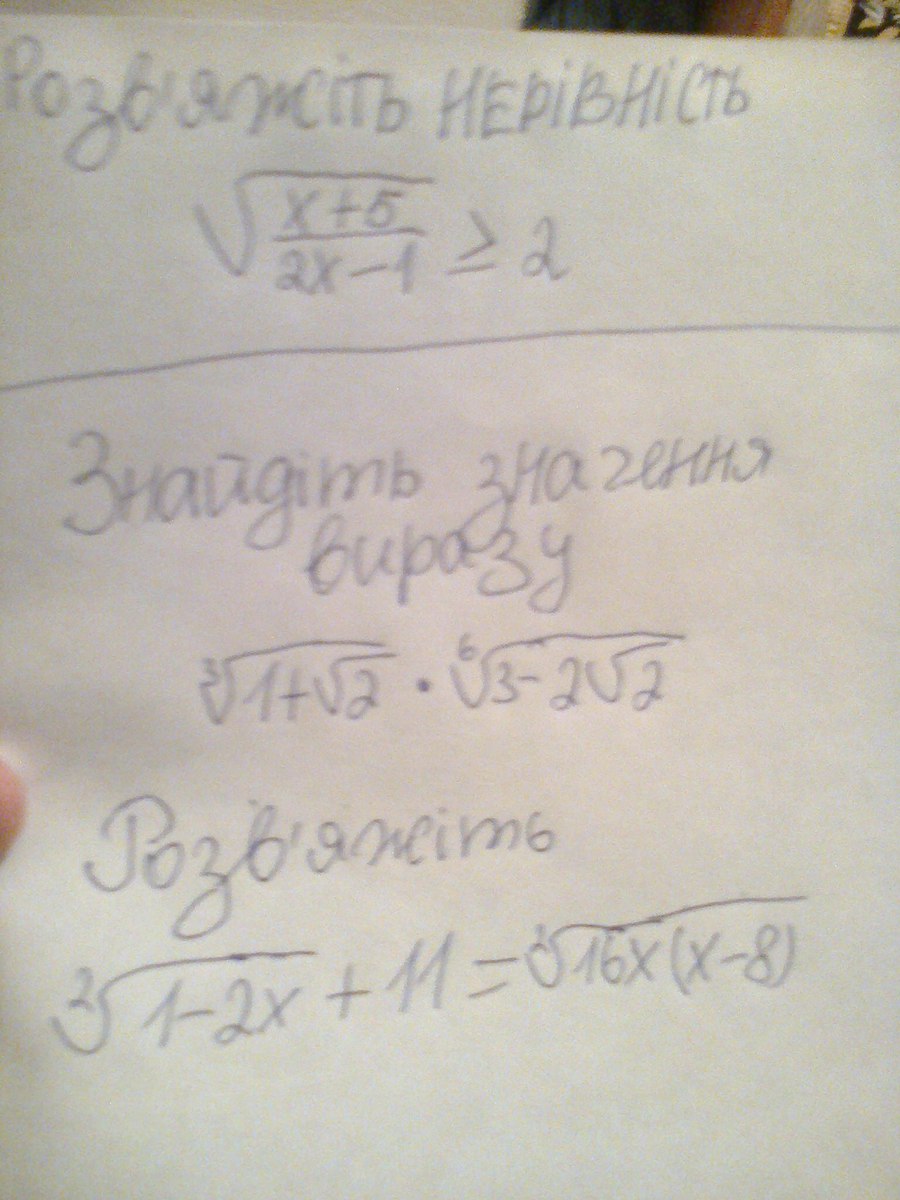 Розв'яжіть НЕРІВНІСТЬ
√((x+5)/(2x-1)) ≥ 2
Знайдіть значення
виразу
∛(1+√2) · ⁶√(3-2√2)
Розв'яжіть
∛(1-2x) + 11 = ∛(16x(x-8))